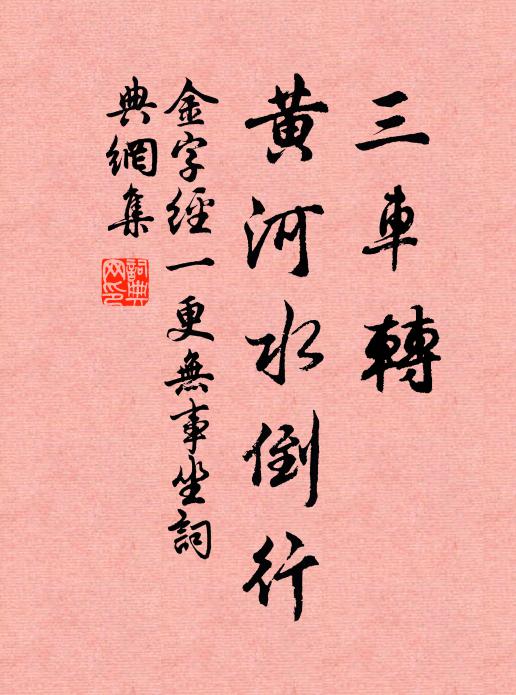 三車轉
黄河水倒行
金字經一更無事坐詞
典網集
詞典网印